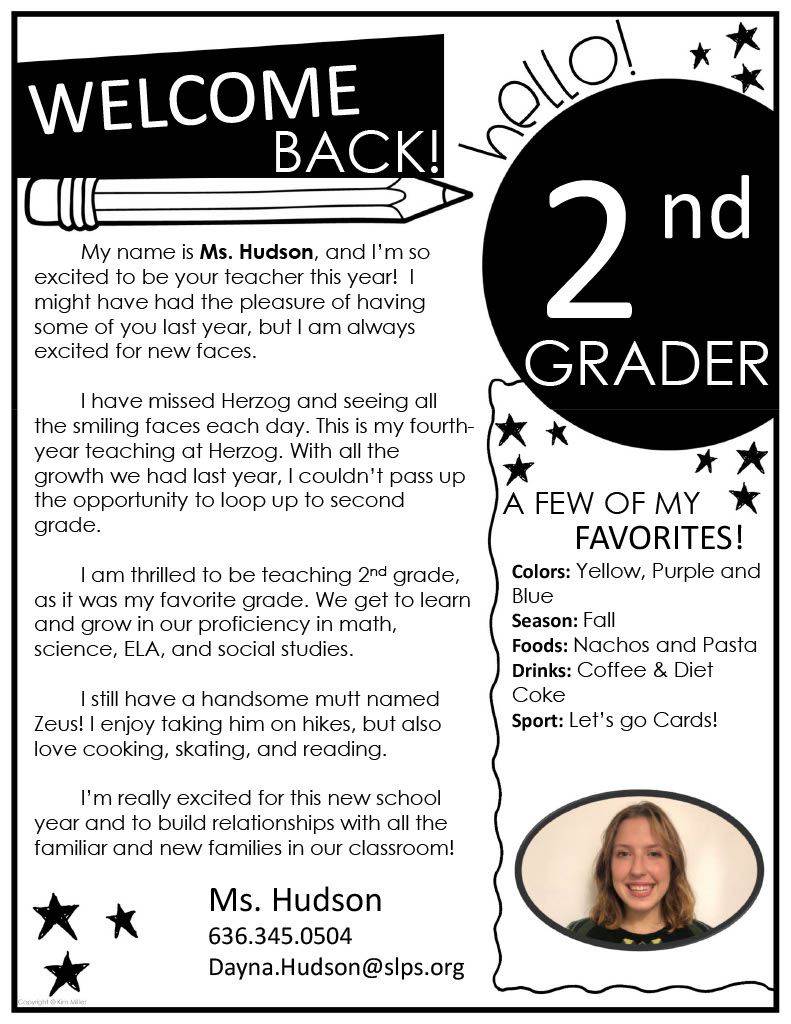 WELCOME
BACK!
hello!
2nd
GRADER
My name is Ms. Hudson, and I'm so
excited to be your teacher this year! I
might have had the pleasure of having
some of you last year, but I am always
excited for new faces.
I have missed Herzog and seeing all
the smiling faces each day. This is my fourth-
year teaching at Herzog. With all the
growth we had last year, I couldn't pass up
the opportunity to loop up to second
grade.
I am thrilled to be teaching 2nd grade,
as it was my favorite grade. We get to learn
and grow in our proficiency in math,
science, ELA, and social studies.
I still have a handsome mutt named
Zeus! I enjoy taking him on hikes, but also
love cooking, skating, and reading.
I'm really excited for this new school
year and to build relationships with all the
familiar and new families in our classroom!
Ms. Hudson
636.345.0504
Dayna.Hudson@slps.org
A FEW OF MY
FAVORITES!
Colors: Yellow, Purple and
Blue
Season: Fall
Foods: Nachos and Pasta
Drinks: Coffee & Diet
Coke
Sport: Let's go Cards!
Copyright © Kim Miller